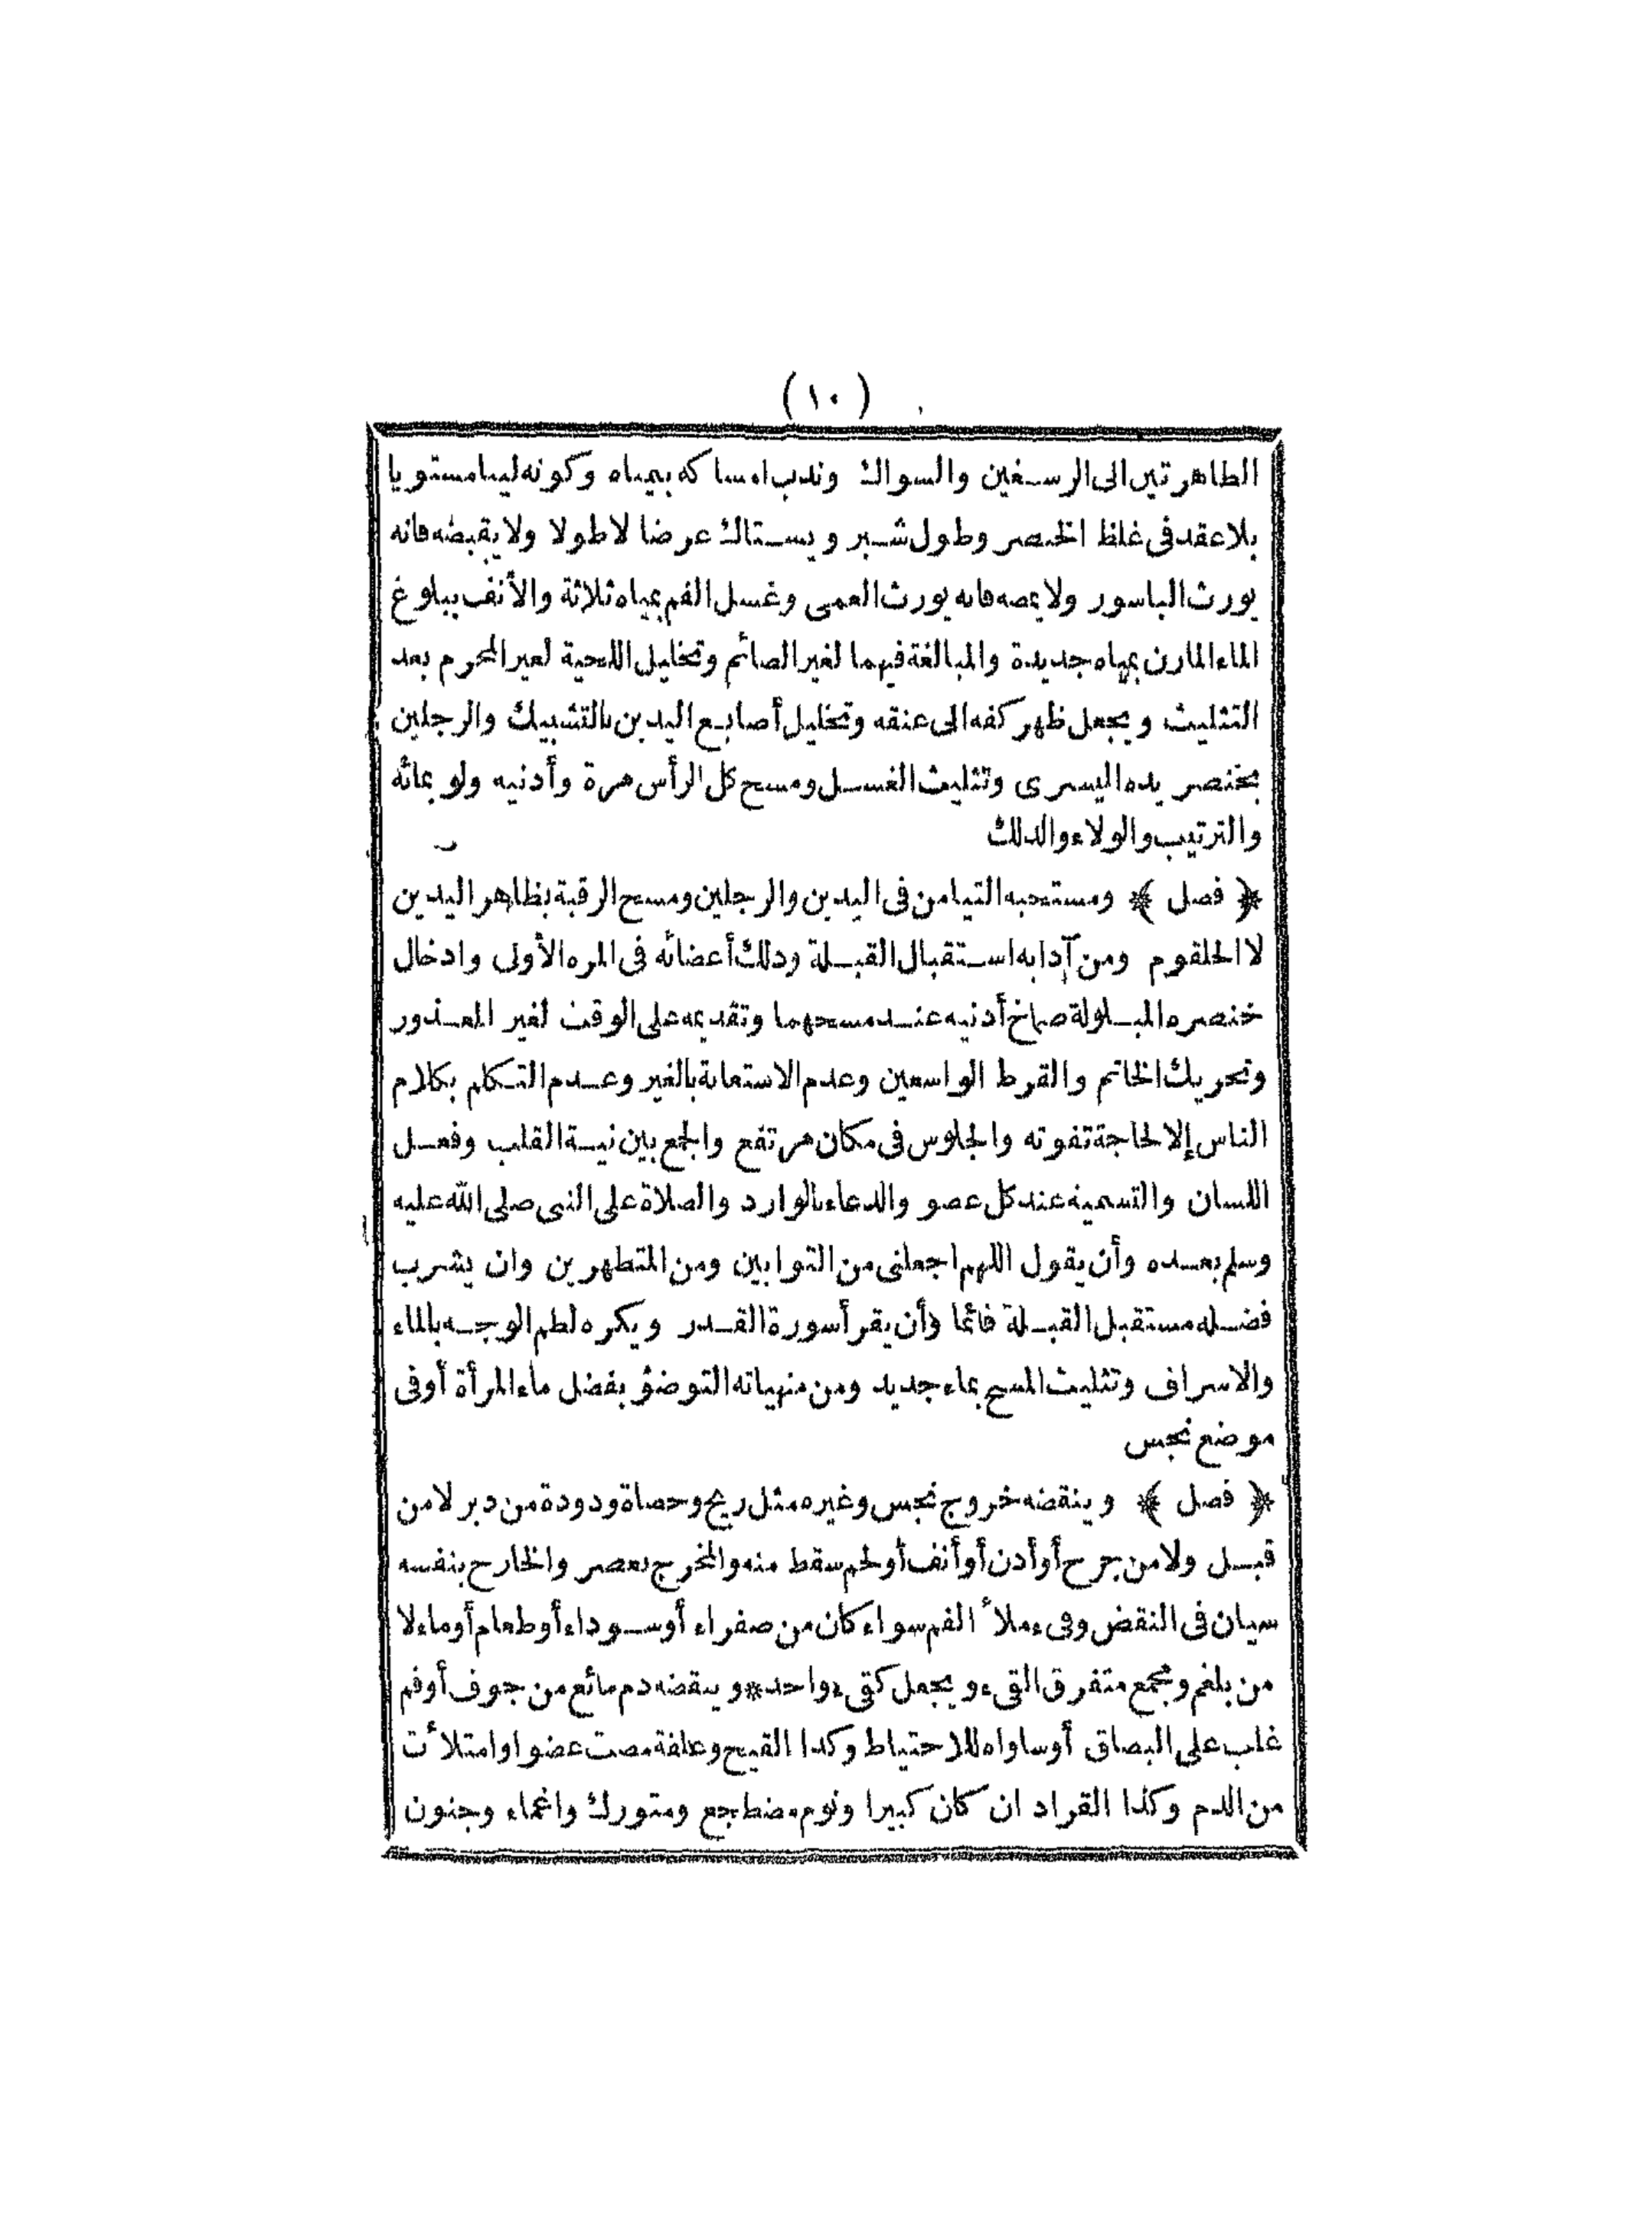 (١٠)
الطاهرتين الى الرسغين والسواك وندب امساكه بيمناه وكونه لينا مستويا
بلا عقد فى غلظ الخنصر وطول شبر ويستاك عرضا لا طولا ولا يقبضه فانه
يورث الباسور ولا يمصه فانه يورث العمى وغسل الفم بمياه ثلاثة والأنف ببلوغ
الماء المارن بمياه جديدة والمبالغة فيهما لغير الصائم وتخليل اللحية لغير المحرم بعد
التثليث ويجعل ظهر كفه الى عنقه وتخليل أصابع اليدين بالتشبيك والرجلين
بخنصر يده اليسرى وتثليث الغسل ومسح كل الرأس مرة وأذنيه ولو بمائه
والترتيب والولاء والدلك
﴿ فصل ﴾ ومستحبه التيامن فى اليدين والرجلين ومسح الرقبة بظاهر اليدين
لا الحلقوم ومن آدابه استقبال القبلة ودلك أعضائه فى المره الأولى وادخال
خنصره المبلولة صماخ أذنيه عند مسحهما وتقديمه على الوقت لغير المعذور
وتحريك الخاتم والقرط الواسعين وعدم الاستعانة بالغير وعدم التكلم بكلام
الناس إلا لحاجة تفوته والجلوس فى مكان مرتفع والجمع بين نية القلب وفعل
اللسان والتسمية عند كل عضو والدعاء بالوارد والصلاة على النبى صلى الله عليه
وسلم بعده وأن يقول اللهم اجعلنى من التوابين ومن المتطهرين وان يشرب
فضله مستقبل القبلة قائما وأن يقرأ سورة القدر ويكره لطم الوجه بالماء
والاسراف وتثليث المسح بماء جديد ومن منهياته التوضؤ بفضل ماء المرأة أو فى
موضع نجس
﴿ فصل ﴾ وينقضه خروج نجس وغيره مثل ريح وحصاة ودودة من دبر لا من
قبل ولا من جرح أو أذن أو أنف أو لحم سقط منه والمخرج بعصر والخارج بنفسه
سيان فى النقض وقىء ملأ الفم سواء كان من صفراء أو سوداء أو طعام أو ماء لا
من بلغم ويجمع متفرق القىء ويجعل كقىء واحد * وينقضه دم مائع من جوف أو فم
غلب على البصاق أو ساواه للاحتياط وكذا القيح وعلقة مصت عضوا وامتلأت
من الدم وكذا القراد ان كان كبيرا ونوم مضطجع ومتورك واغماء وجنون